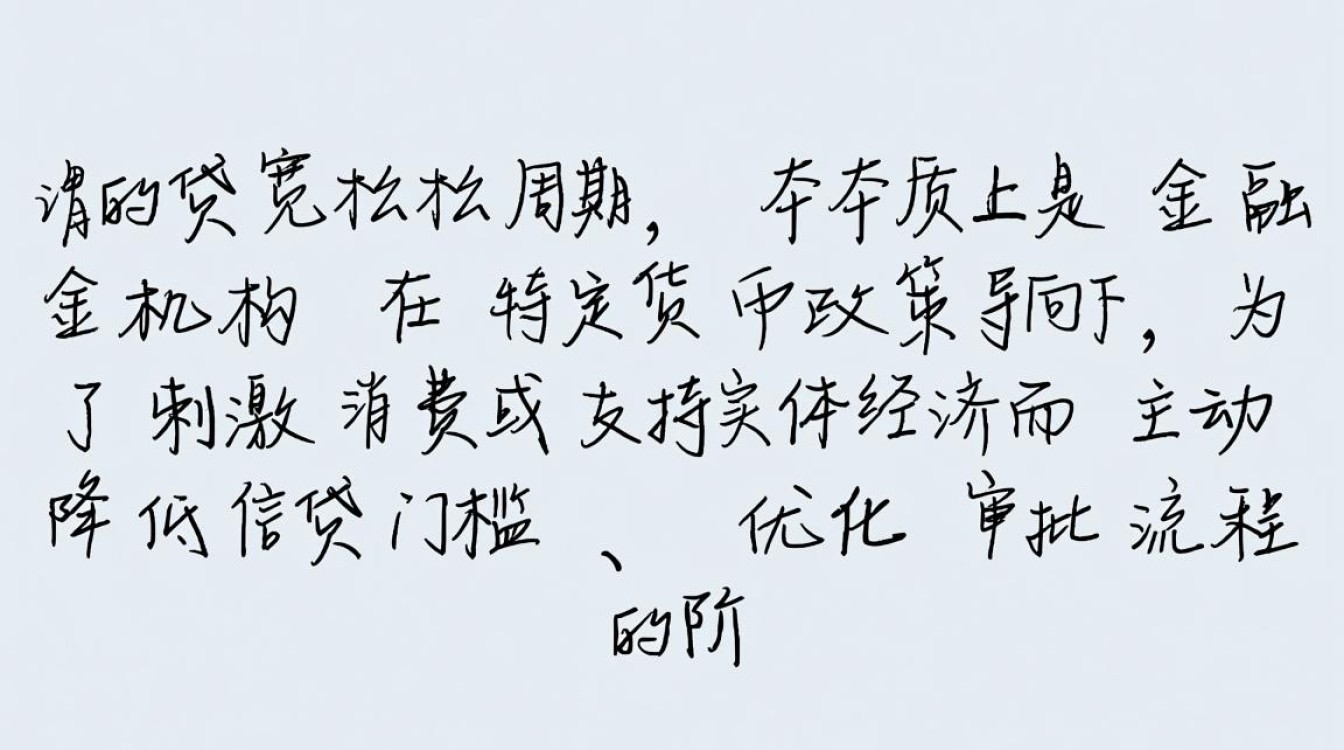 谓的贷宽松松周期，本本质上是金融
金机构在特定货币政策导向下，为
了刺激消费或支持实体经济而主动
降低信贷门槛、优化审批流程
的阶